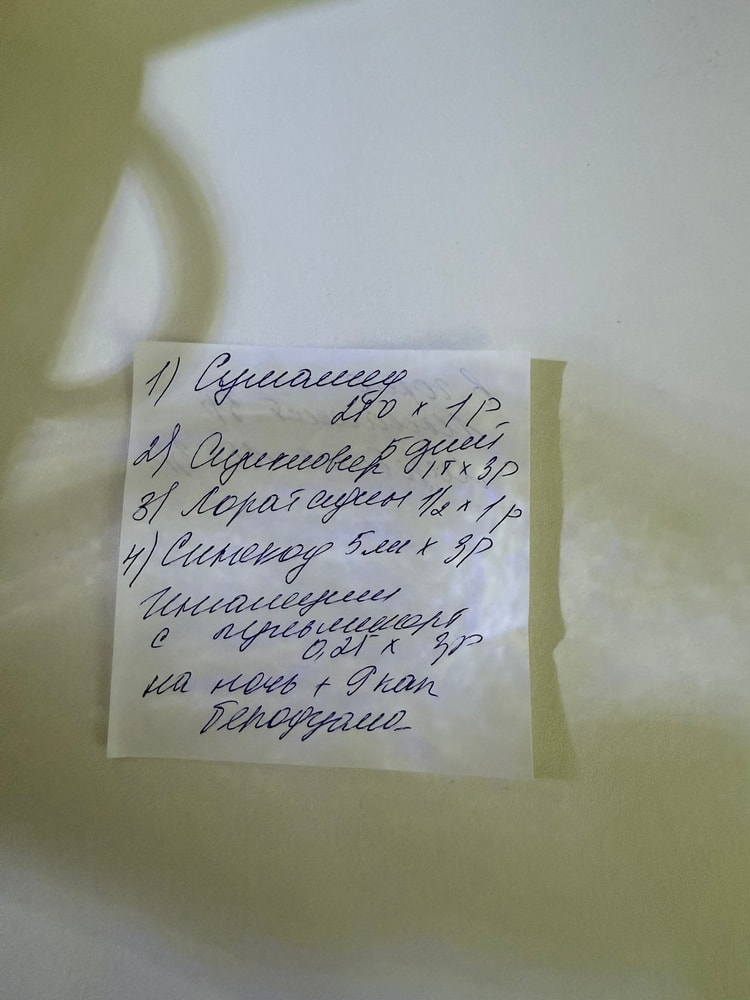 1) Сумамед
250 x 1 р
5 дней
2) Циклоовер 1т x 3р
3) Лоратадин 1/2 x 1 р
4) Синекод 5 мл x 3р
Ингаляции
с пульмикорт
0,25 x 3р
на ночь + 9 кап
Беродуала